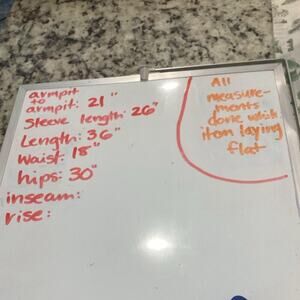 armpit
to
armpit: 21"
Sleeve length: 26"
Length: 36"
Waist: 18"
hips: 30"
inseam:
rise:
All
measure-
ments
done while
item laying
flat